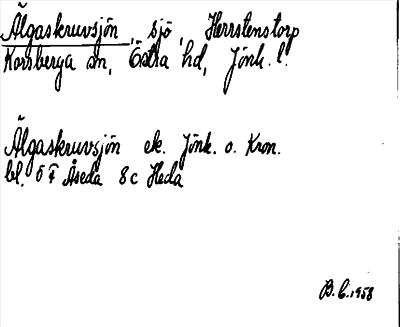 Älgaskruvsjön, sjö, Herrstenstorp
Korsberga sn, Östra hd, Jönk. l.
Älgaskruvsjön ek. Jönk. o. Kron.
bl. 5 F Åseda 8 c Heda
B. C. 1958